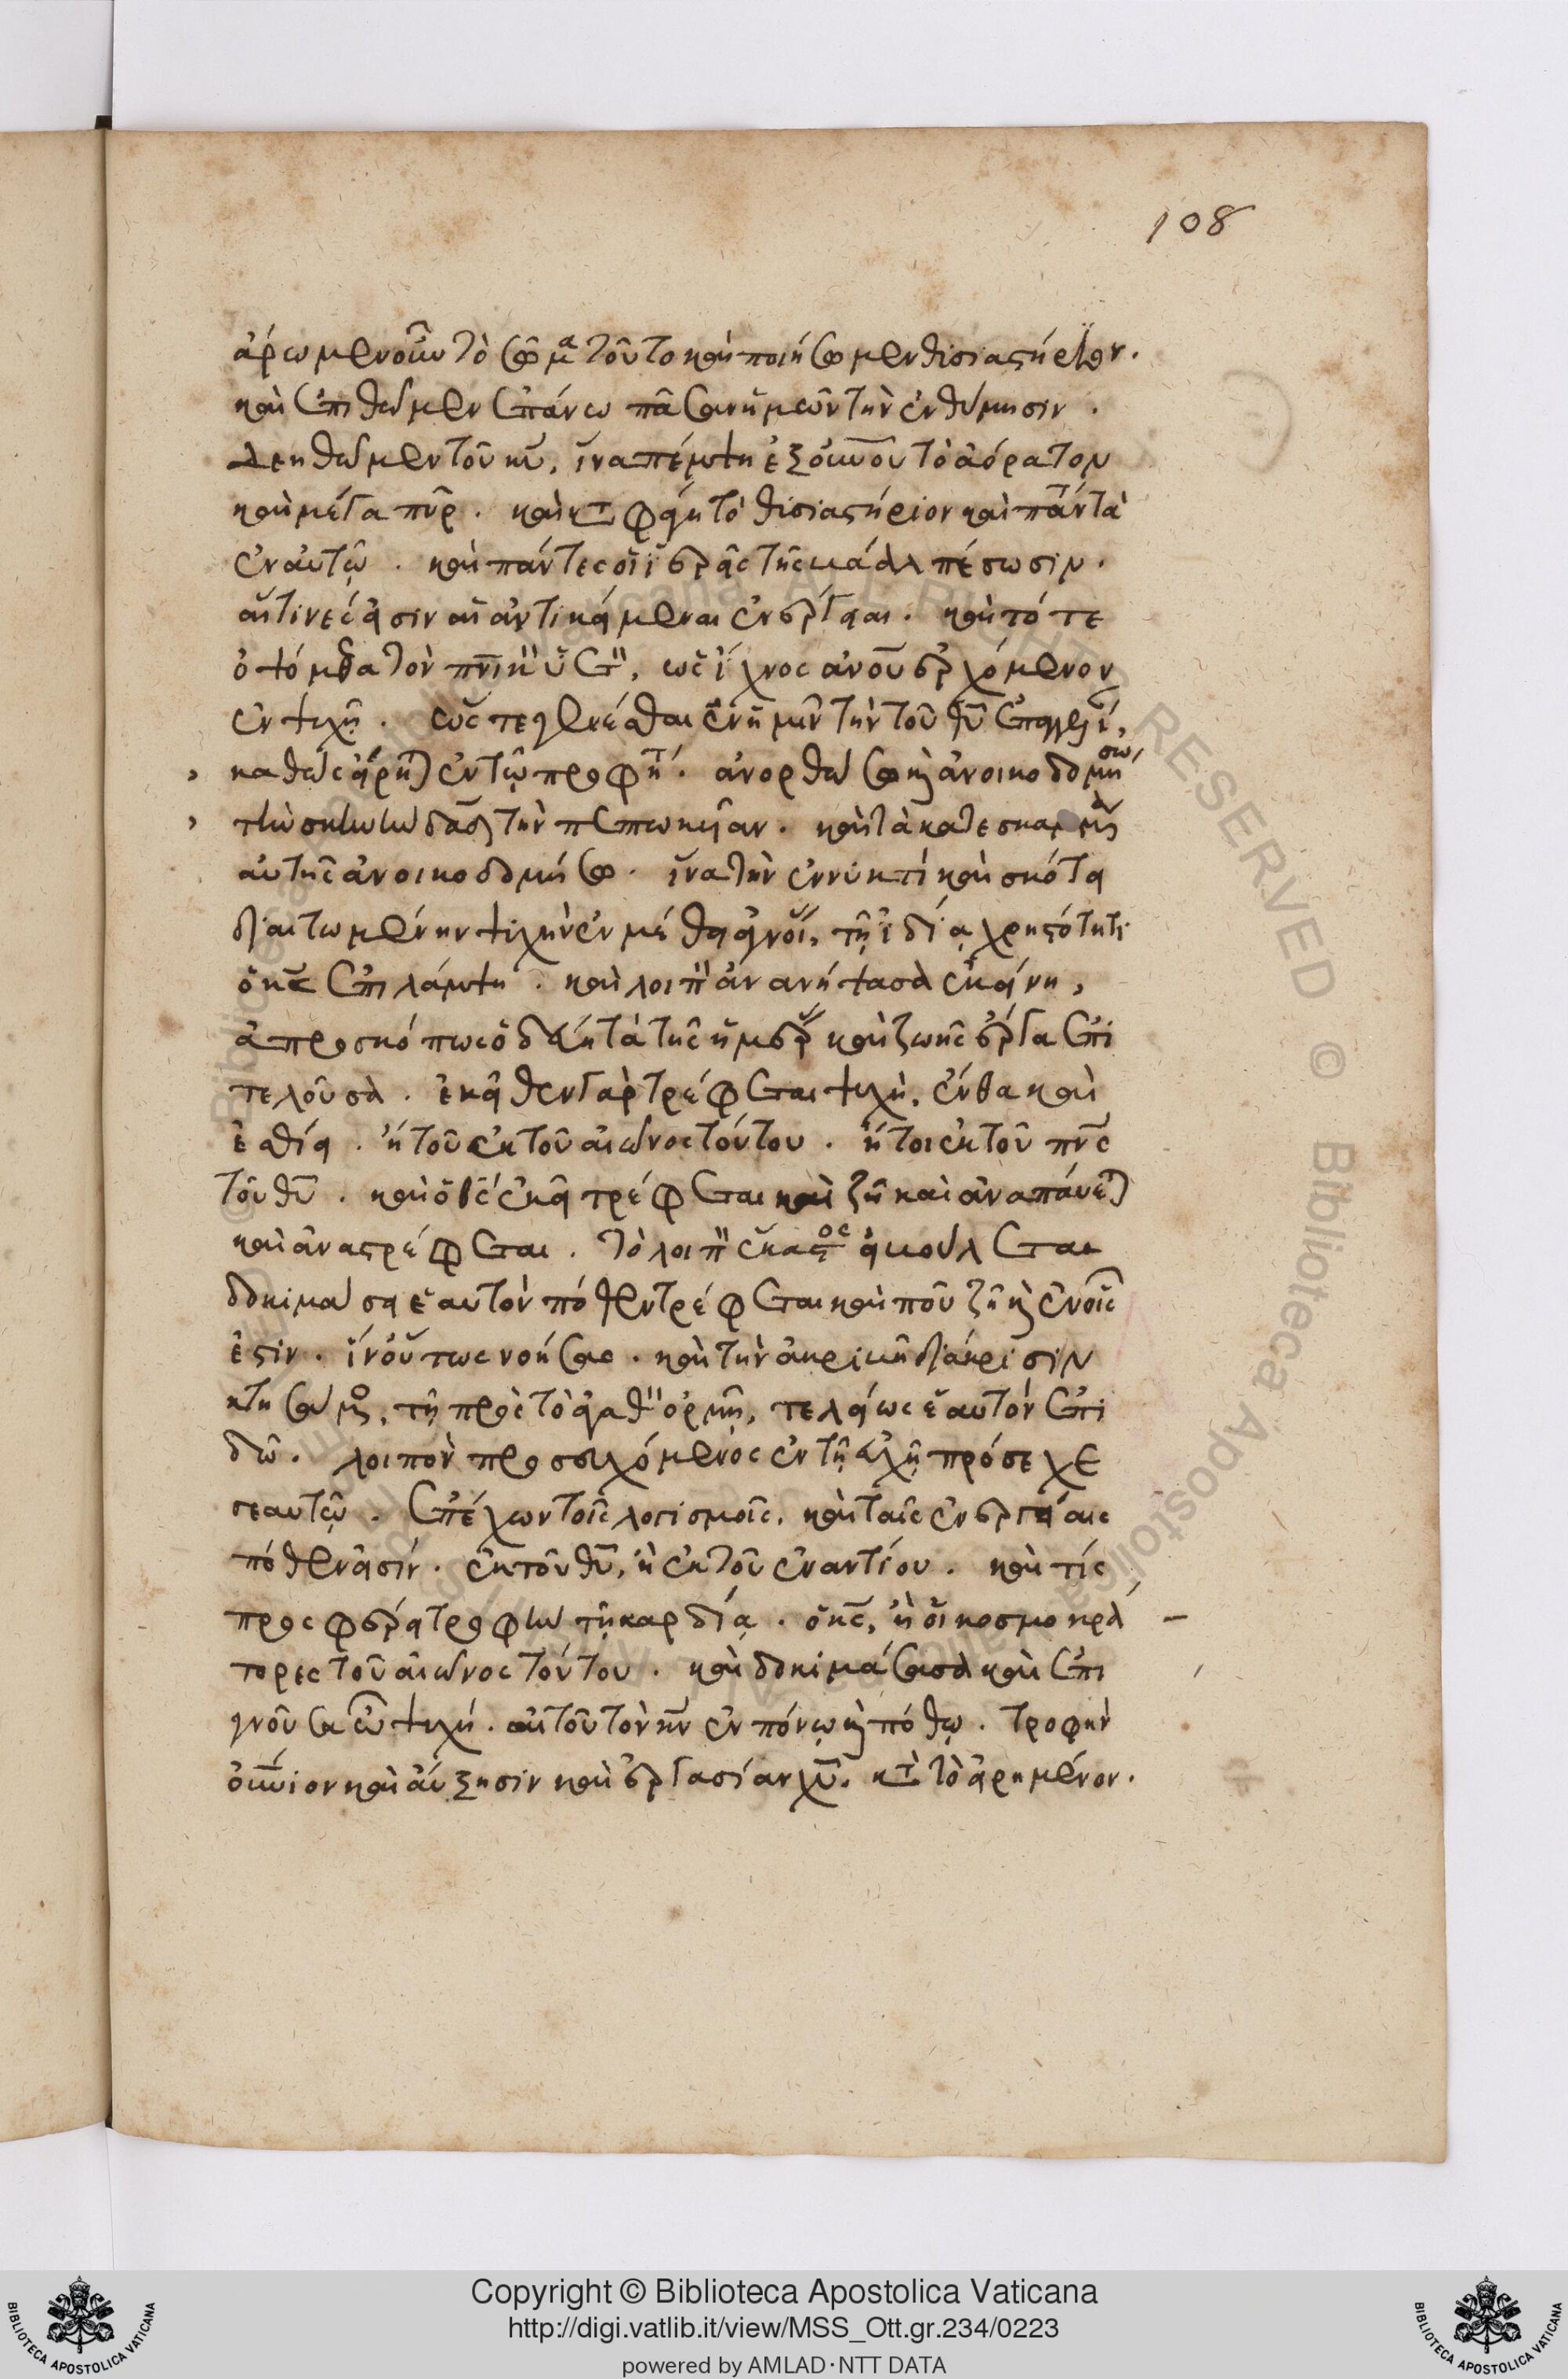 108
ἄρωμεν οὖν τὸ σῶμα τοῦτο καὶ ποιήσωμεν θυσιαστήριον.
καὶ ἐπιθῶμεν ἐπάνω πᾶσαν ἡμῶν τὴν ἐνθύμησιν.
δεηθῶμεν τοῦ κυ, ἵνα πέμψη ἐξ οὐνοῦ τὸ ἀόρατον
καὶ μέγα πῦρ. καὶ κατὰ φάγη τὸ θυσιαστήριον καὶ πάντα
ἐν αὐτῷ. καὶ πάντες οἱ ἱερεῖς τῆς βάαλ πέσωσιν.
αἵτινές εἰσιν αἱ ἀντικείμεναι ἐνέργειαι. καὶ τότε
ὀψόμεθα τὸν πνικὸν ὑετὸν, ὡς ἴχνος ἀνου ἐρχόμενον
ἐν ψυχῇ. ὡς γενέσθαι ἐν ἡμῖν τὴν τοῦ θυ ἐπαγγελίαν,
καθὼς εἴρηται ἐν τῷ προφήτη. ἀνορθώσω καὶ ἀνοικοδομήσω
τὴν σκηνὴν δαδ τὴν πεπτωκυῖαν. καὶ τὰ κατεσκαμμένα
αὐτῆς ἀνοικοδομήσω. ἵνα τὴν ἐν νυκτὶ καὶ σκότει
διαιτωμένην ψυχὴν ἐν μέθη ἀγνοίας, τῇ ἰδίᾳ χρηστότητι
ὁ κς ἐπιλάμψη. καὶ λοιπὸν ἀνανήψασα ἐκείνη,
ἀπροσκόπως ὁδεύῃ τὰ τῆς ἡμέρας καὶ ζωῆς ἔργα ἐπι
τελοῦσα. ἐκεῖθεν γὰρ τρέφεται ψυχὴ, ἔνθα καὶ
ἐσθίει. ἢ τοῦ ἐκ τοῦ αἰῶνος τούτου. ἤτοι ἐκ τοῦ πνς
τοῦ θυ. καὶ ὁ θς ἐκεῖ τρέφεται καὶ ζῇ καὶ ἀναπαύεται
καὶ ἀναστρέφεται. τὸ λοιπὸν ἕκαστος εἰ βούλεται
δοκιμάσει ἑαυτὸν πόθεν τρέφεται καὶ ποῦ ζῇ καὶ ἐν οἷς
ἐστιν. ἵν' οὕτως νοήσας. καὶ τὴν ἀκριβῆ διάκρισιν
κτησάμενος, τῇ πρὸς τὸ ἀγαθὸν ὁρμῇ, τελείως ἑαυτὸν ἐπι
δῶ. λοιπὸν προσευχόμενος ἐν τῇ εὐχῇ πρόσεχε
σεαυτῷ. ἐπέχων τοῖς λογισμοῖς, καὶ ταῖς ἐνεργείαις
πόθεν εἰσίν. ἐκ τοῦ θυ, ἢ ἐκ τοῦ ἐναντίου. καὶ τίς
προσφέρει τροφὴν τῇ καρδίᾳ. ὁ κς, ἢ οἱ κοσμοκρά
τορες τοῦ αἰῶνος τούτου. καὶ δοκιμάσασα καὶ ἐπι
γνοῦσα ὦ ψυχή. αἰτοῦ τὸν κν ἐν πόνῳ καὶ πόθῳ. τροφὴν
οὐνιον καὶ αὔξησιν καὶ ἐργασίαν χυ. κατὰ τὸ εἰρημένον.
Copyright © Biblioteca Apostolica Vaticana
http://digi.vatlib.it/view/MSS_Ott.gr.234/0223
powered by AMLAD·NTT DATA
BIBLIOTECA APOSTOLICA VATICANA
BIBLIOTECA APOSTOLICA VATICANA